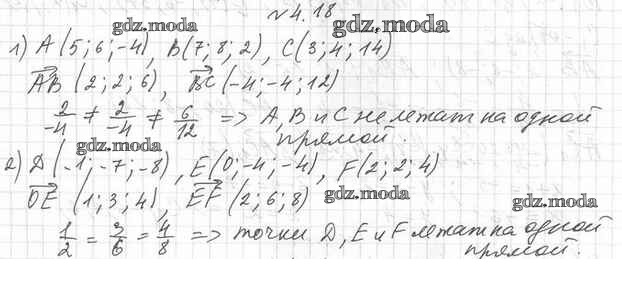 №4.18
gdz.moda gdz.moda
1) A(5;6;-4), B(7;8;2), C(3;4;14)
AB (2;2;6), BC(-4;-4;12)
2/-4 ≠ 2/-4 ≠ 6/12 => A, B и C не лежат на одной
прямой.
gdz.moda
2) D(-1;-7;-8), E(0;-4;-4), F(2;2;4)
DE (1;3;4), EF (2;6;8)
gdz.moda gdz.moda
1/2 = 3/6 = 4/8 => точки D, E и F лежат на одной
прямой.